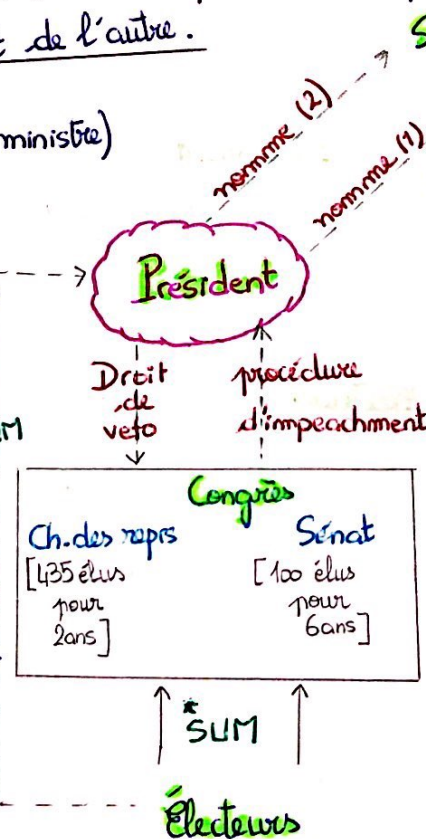 t de l'autre.
S
ministre)
nomme (2)
nomme (1)
Président
Droit
de
veto
procédure
d'impeachment
M
Congrès
Ch. des reprs
[435 élus
pour
2ans]
Sénat
[100 élus
pour
6ans]
*SUM
Électeurs